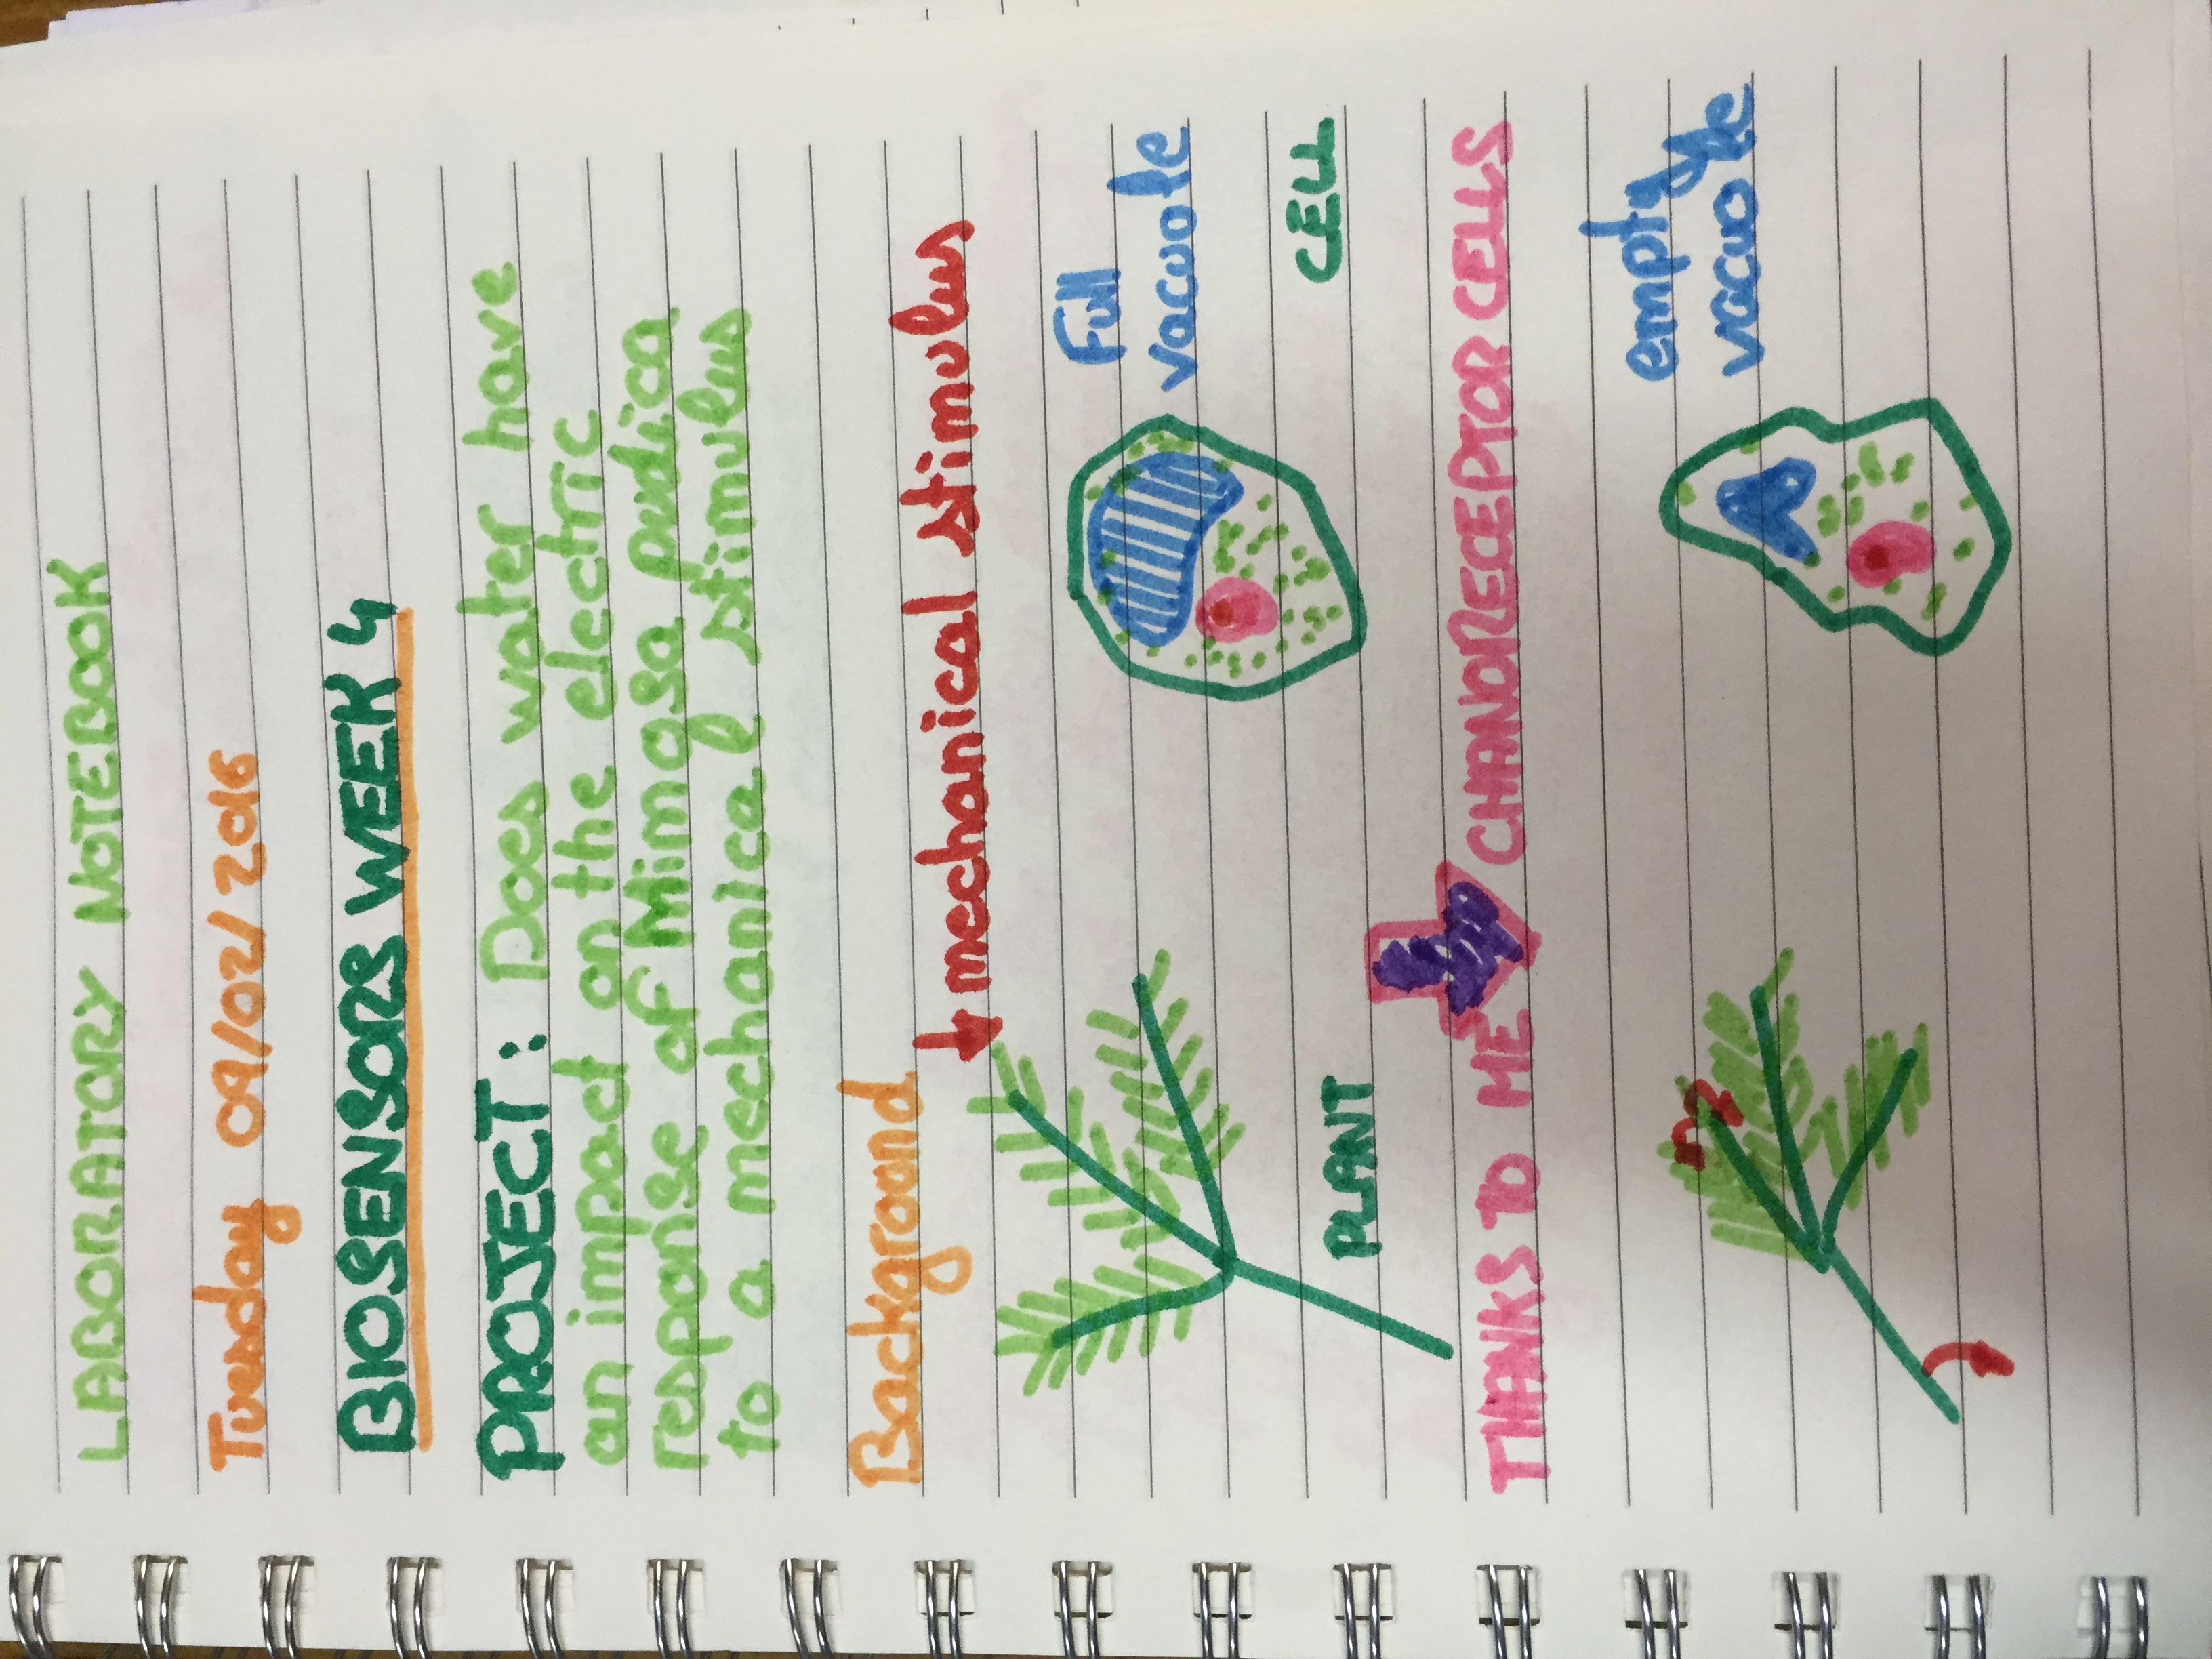 LABORATORY NOTEBOOK
Tuesday 09/02/2016
BIOSENSORS WEEK 4
PROJECT: Does water have
an impact on the electric
response of Mimosa pudica
to a mechanical stimulus
Background
mechanical stimulus
Full
vacuole
CELL
PLANT
THANKS TO ME CHANORECEPTOR CELLS
empty
vacuole